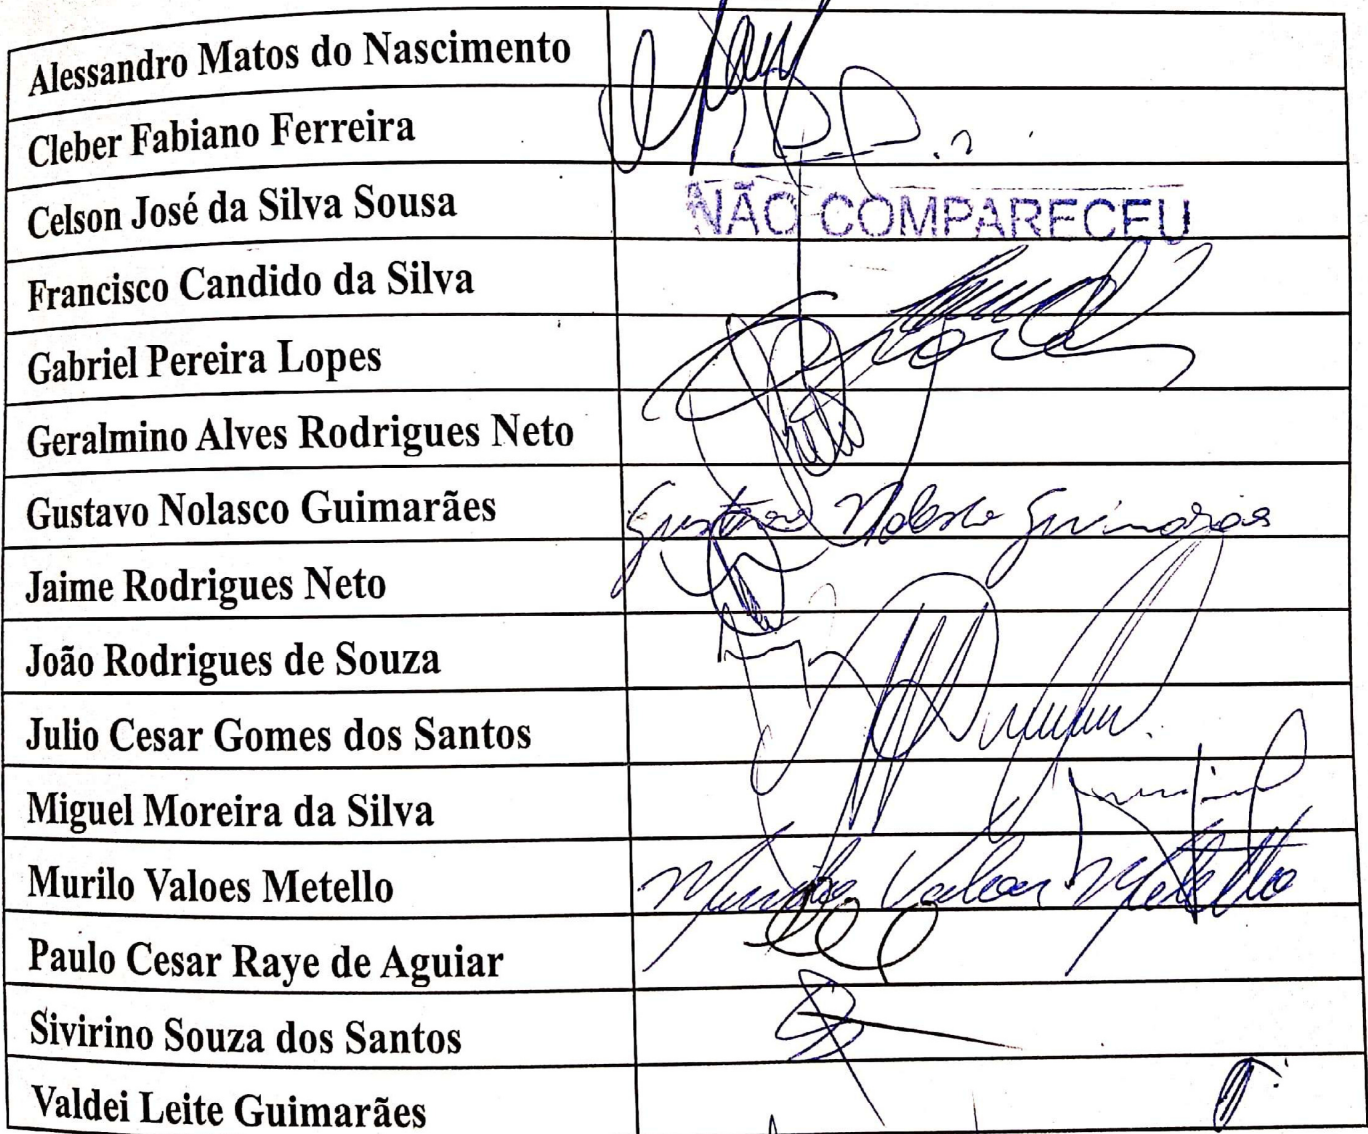 Alessandro Matos do Nascimento
Cleber Fabiano Ferreira
Celson José da Silva Sousa NÃO COMPARECEU
Francisco Candido da Silva
Gabriel Pereira Lopes
Geralmino Alves Rodrigues Neto
Gustavo Nolasco Guimarães Gustavo Nolasco Guimarães
Jaime Rodrigues Neto
João Rodrigues de Souza
Julio Cesar Gomes dos Santos
Miguel Moreira da Silva
Murilo Valoes Metello Murilo Valoes Metello
Paulo Cesar Raye de Aguiar
Sivirino Souza dos Santos
Valdei Leite Guimarães